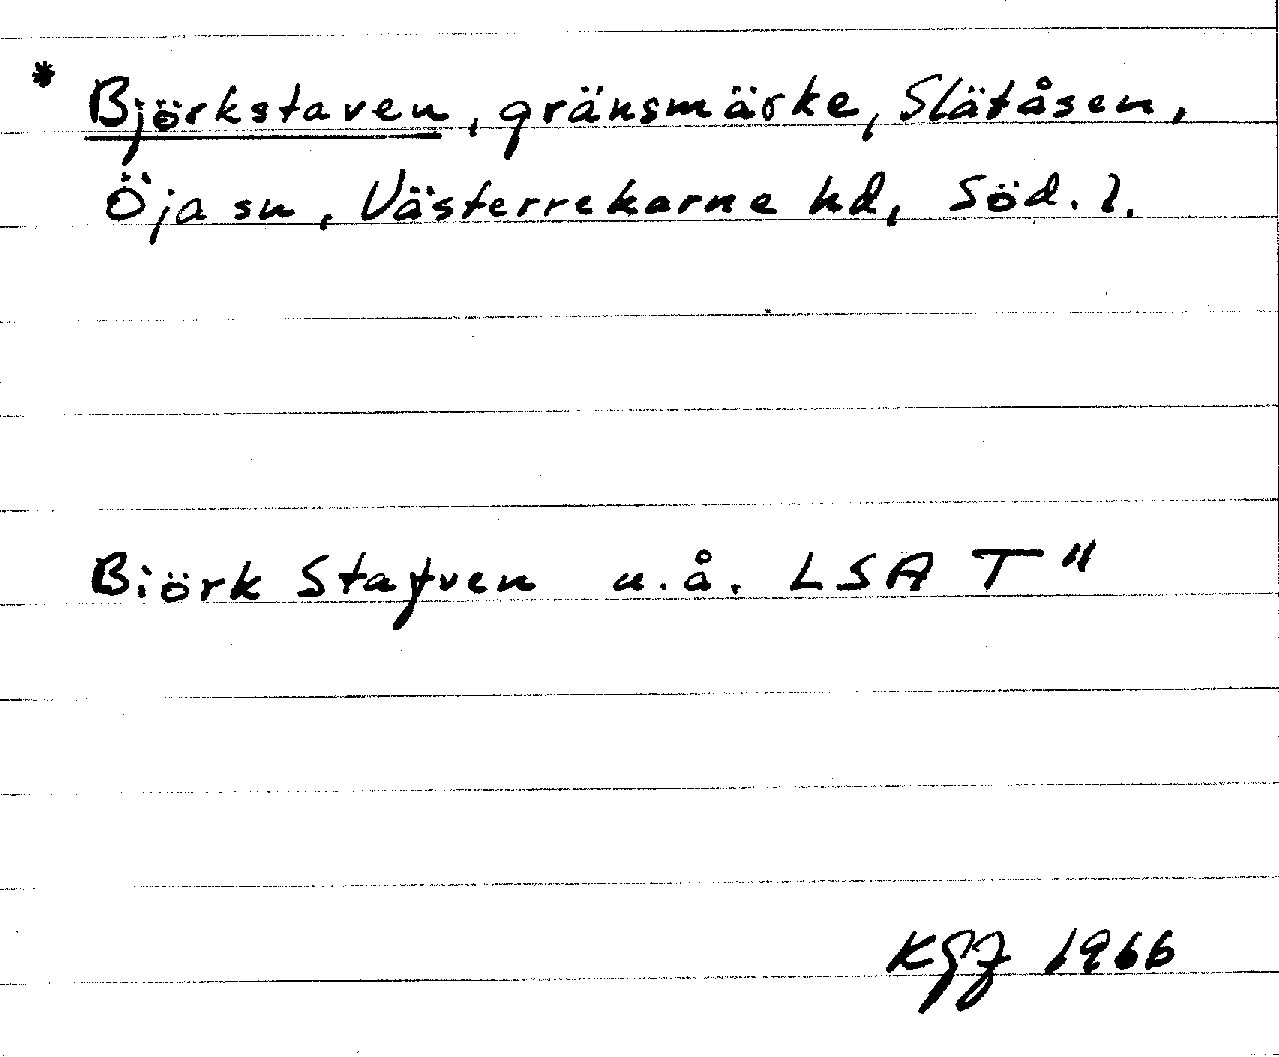 * Björkstaven, gränsmärke, Slätåsen,
Öja sn, Västerrekarne hd, Söd. l.
Biörk Stafven u.å. LSA T"
KGJ 1966